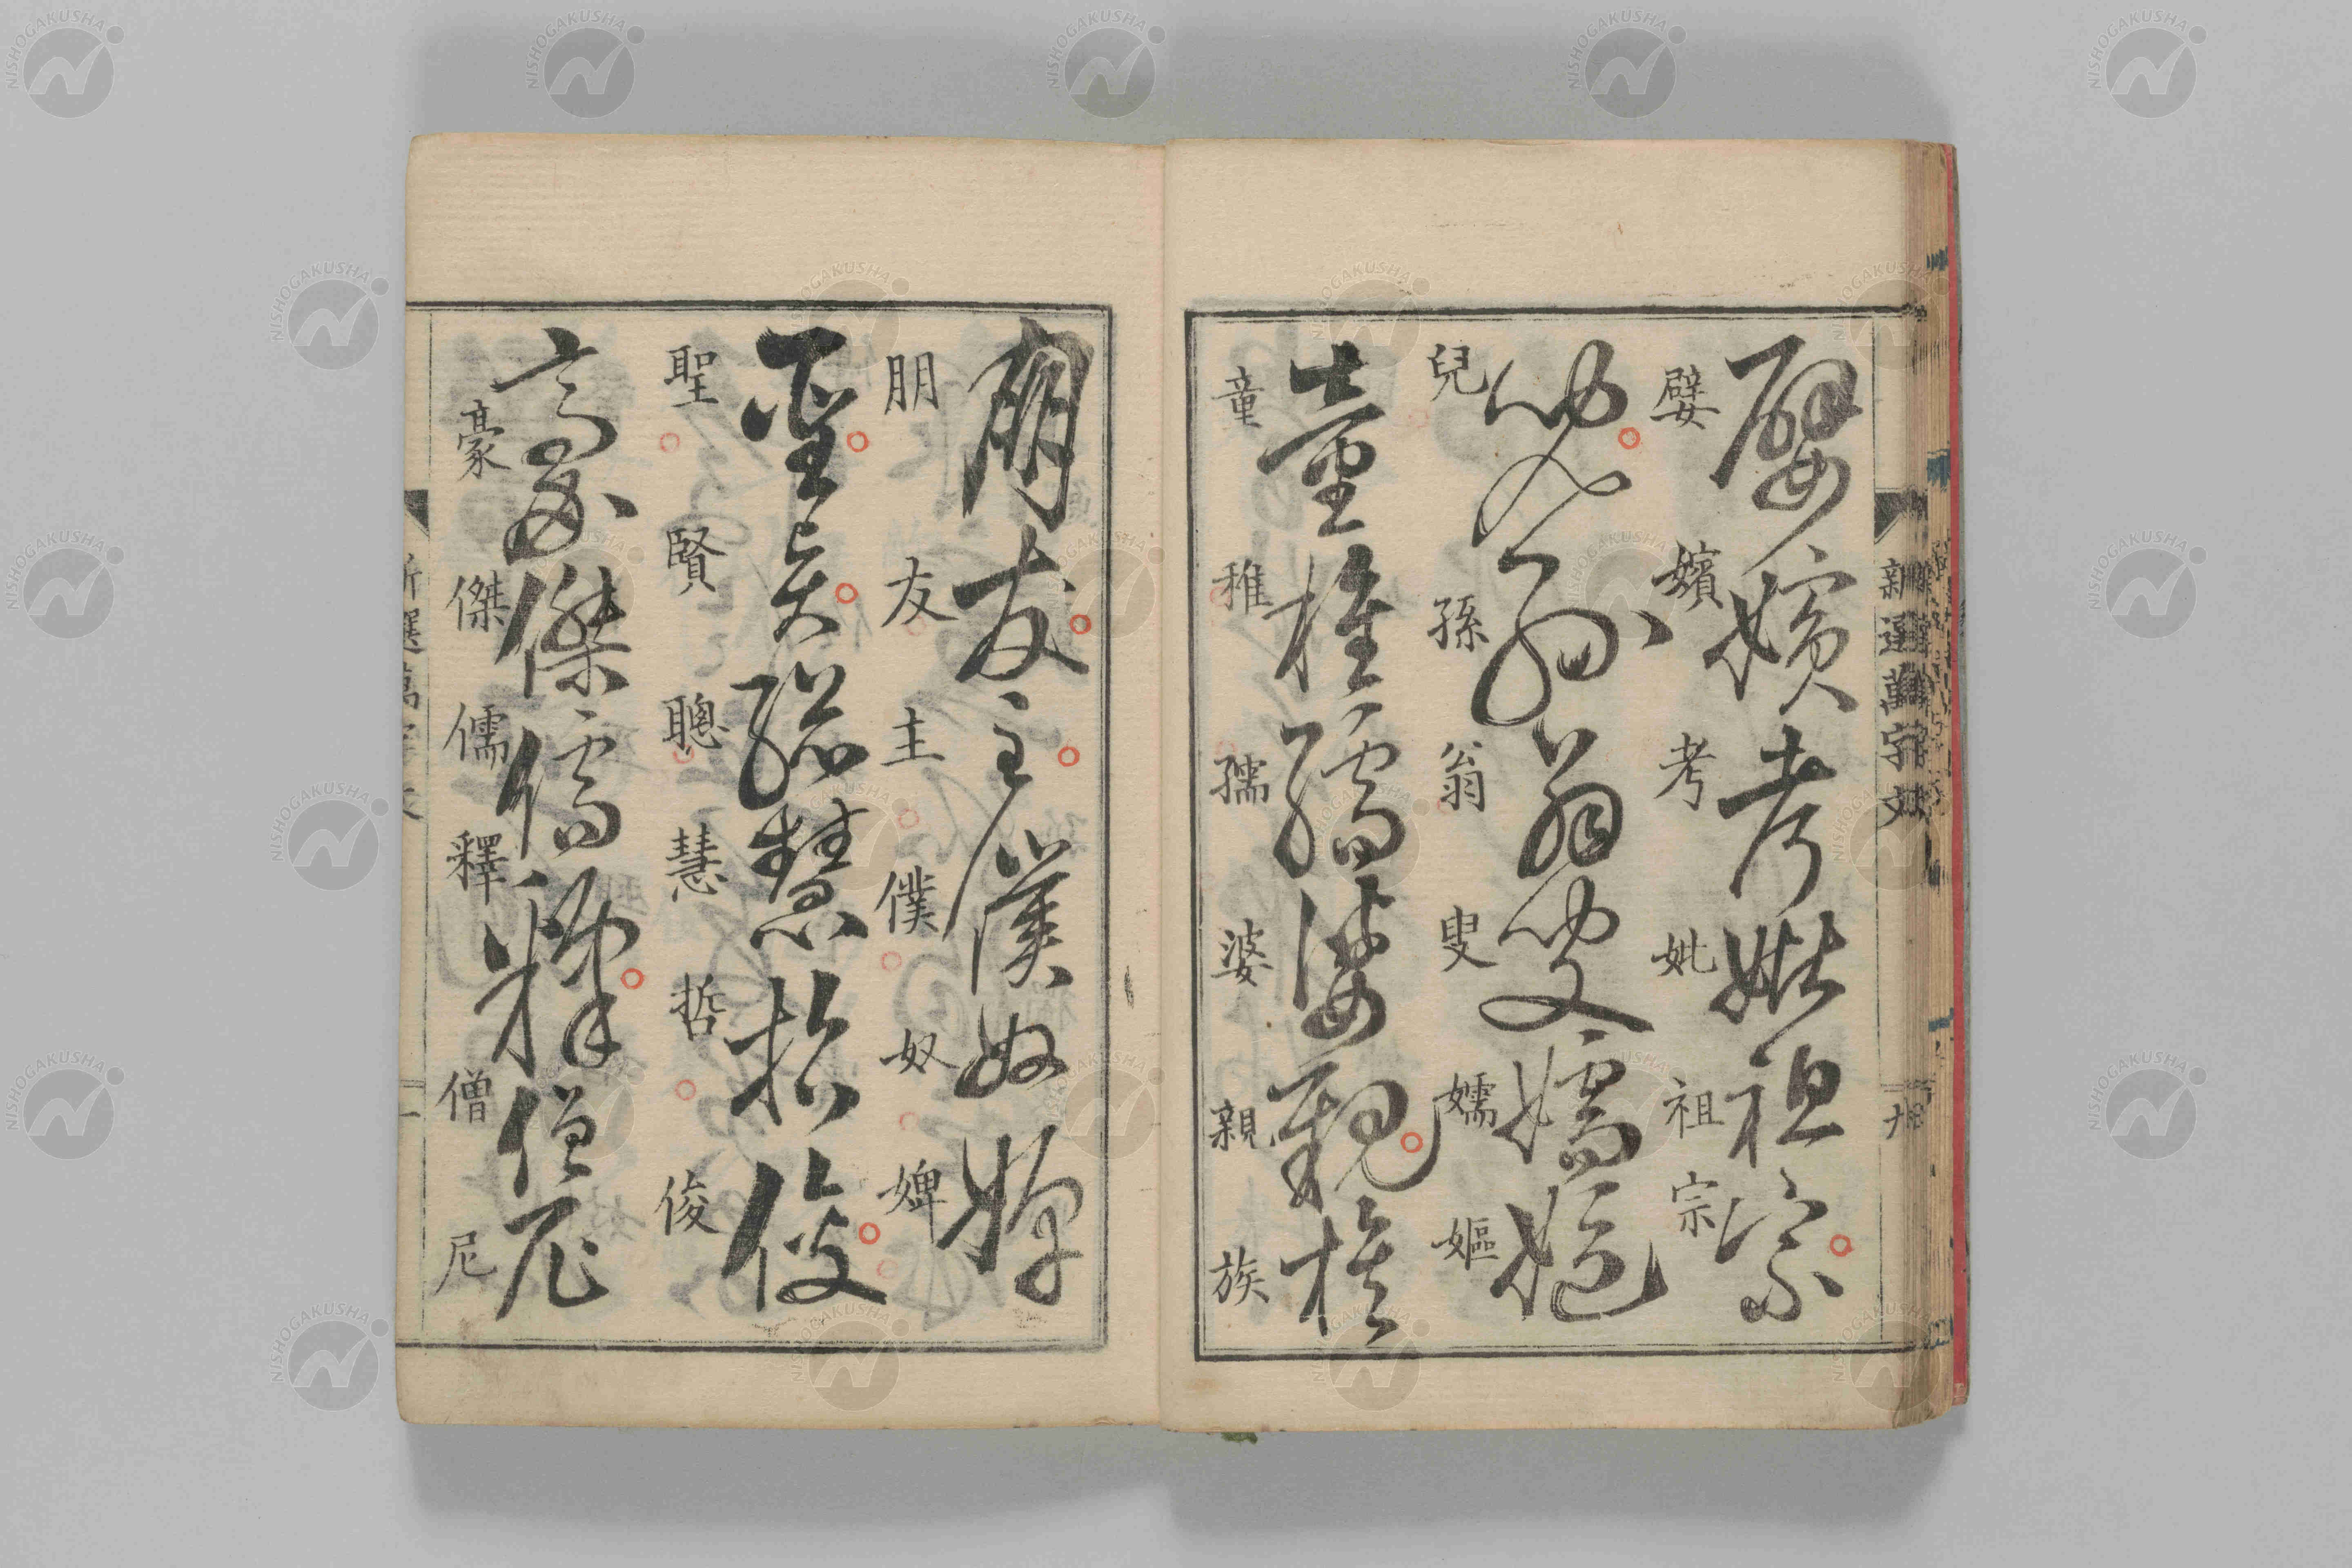 新選萬字文
嬖嬪考妣祖宗
嬖嬪考妣祖宗
兒孫翁叟嬬嫗
兒孫翁叟嬬嫗
童稚孺婆親族
童稚孺婆親族
朋友主僕奴婢
朋友主僕奴婢
聖賢聰慧哲俊
聖賢聰慧哲俊
豪傑儒釋僧尼
豪傑儒釋僧尼